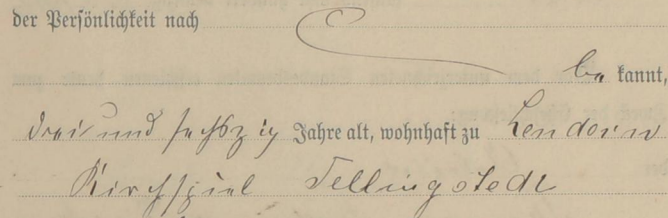 der Persönlichkeit nach
be kannt,
drei und sechszig Jahre alt, wohnhaft zu Lendern
Kirchspiel Tellingstedt